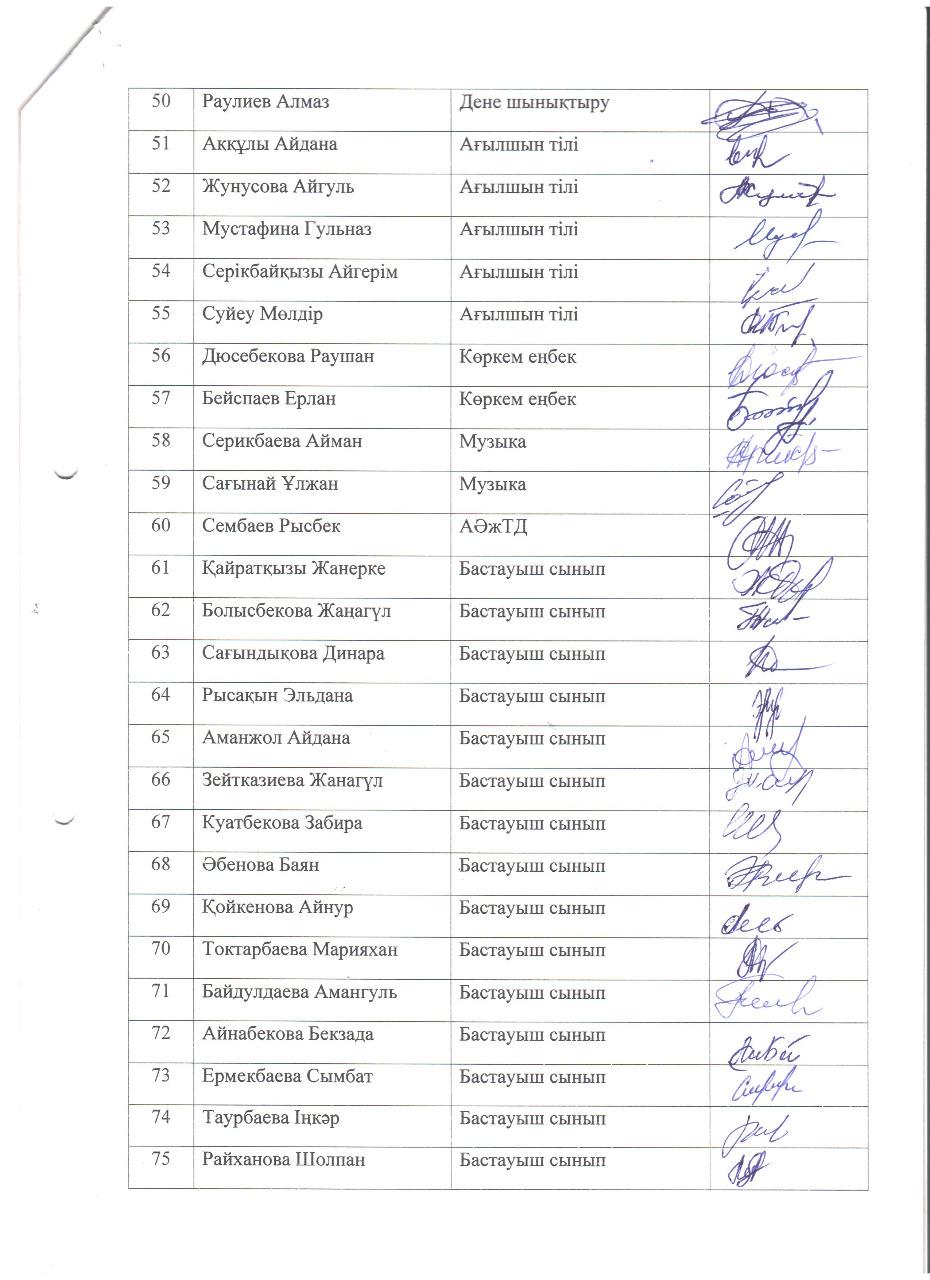 50 Раулиев Алмаз Дене шынықтыру
51 Аққұлы Айдана Ағылшын тілі
52 Жунусова Айгуль Ағылшын тілі
53 Мустафина Гульназ Ағылшын тілі
54 Серікбайқызы Айгерім Ағылшын тілі
55 Суйеу Мөлдір Ағылшын тілі
56 Дюсебекова Раушан Көркем еңбек
57 Бейспаев Ерлан Көркем еңбек
58 Серикбаева Айман Музыка
59 Сағынай Ұлжан Музыка
60 Сембаев Рысбек АӘжТД
61 Қайратқызы Жанерке Бастауыш сынып
62 Болысбекова Жаңагүл Бастауыш сынып
63 Сағындықова Динара Бастауыш сынып
64 Рысақын Эльдана Бастауыш сынып
65 Аманжол Айдана Бастауыш сынып
66 Зейтказиева Жанагүл Бастауыш сынып
67 Куатбекова Забира Бастауыш сынып
68 Әбенова Баян Бастауыш сынып
69 Қойкенова Айнур Бастауыш сынып
70 Токтарбаева Марияхан Бастауыш сынып
71 Байдулдаева Амангуль Бастауыш сынып
72 Айнабекова Бекзада Бастауыш сынып
73 Ермекбаева Сымбат Бастауыш сынып
74 Таурбаева Іңкәр Бастауыш сынып
75 Райханова Шолпан Бастауыш сынып